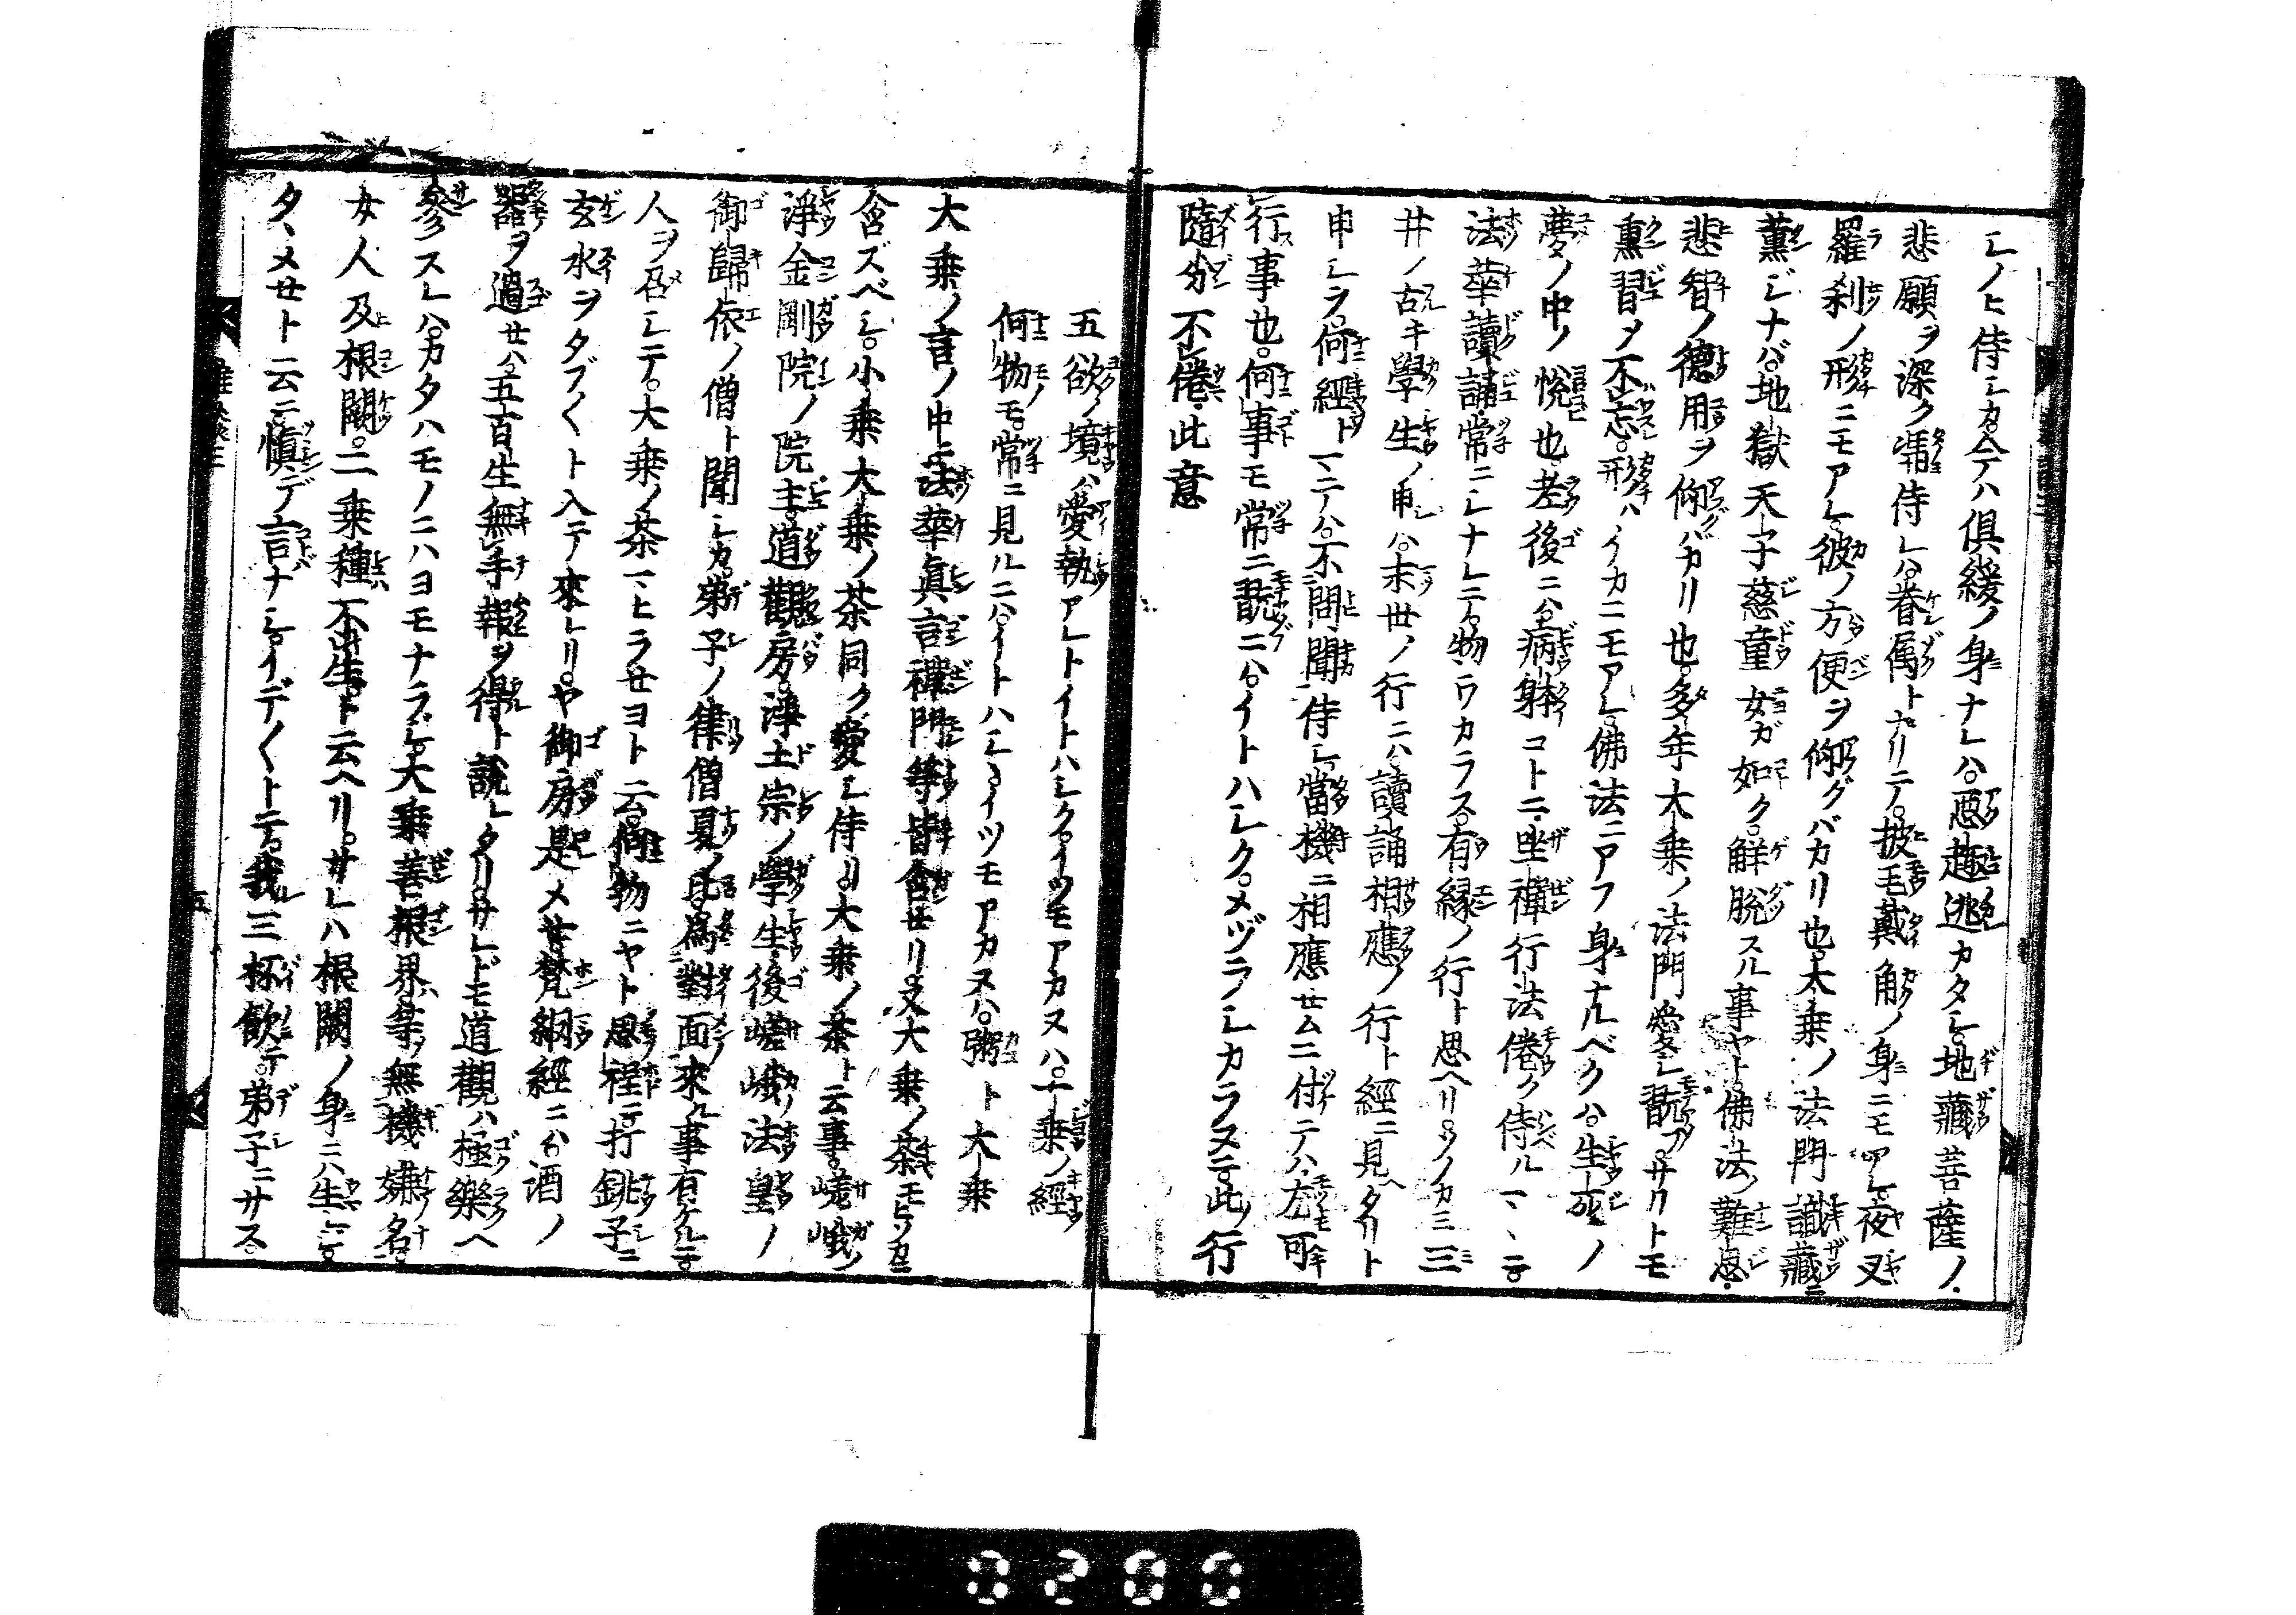 シノヒ侍シカ。今ハ倶緩ノ身ナレハ。惡趣逃カタシ。地藏菩薩ノ
悲願ヲ深ク憑侍レハ。眷属トナリテ。披毛戴角ノ身ニモアレ。夜叉
羅刹ノ形ニモアレ。彼ノ方便ヲ仰グバカリ也。大乗ノ法門識藏ニ
薫ジナバ。地獄天子慈童女ガ如ク。解脱スル事ヤト。佛法ノ難思
悲智ノ徳用ヲ仰バカリ也。多年大乗ノ法門愛シ翫ア。サリトモ
熏習メ不忘。形ハイカニモアレ。佛法ニアフ身ナルベクハ。生死ノ
夢ノ中ノ悦也。老後ニハ。病躰コトニ。坐禪行法倦ク侍ルマヽニ。
法華讀誦。常ニシナレニ。物ニワカラス。有縁ノ行ト思ヘリ。ソノカミ三
井ノ古キ學生ノ申シハ。末世ノ行ニハ。讀誦相應ノ行ト經ニ見ヘタリト
申シヲ。何經トマテハ。不問聞侍シ。當機ニ相應セムニ付テハ。左モ可
行事也。何事モ常ニ翫ニハ。イトハシク。メヅラシカラヌニ。此ノ行
隨分不倦。此意
五欲ノ境ハ愛執アレトイトハシク。イツモアカヌハ。一乗ノ經
何物モ。常ニ見ルニハ。イトハシ。イツモアカヌハ。粥ト大乗
大乗ノ言ノ中ニ。法華眞言禪門等皆含セリ。又大乗ノ茶モヒソカニ
含ズベシ。小乗大乗ノ茶同ク愛シ侍リ。大乗ノ茶ト云事。嵯峨ノ
淨金剛院ノ院主。道觀房。淨土宗ノ學生。後嵯峨ノ法皇ノ
御歸依ノ僧ト聞シカ。弟子ノ律僧夏ノ比爲對面來ル事有ケルニ。
人ヲ召シテ。大乗ノ茶マヒラセヨト云。何物ニヤト思程ニ。打銚子ニ
玄水ヲタブ〱ト入テ來レリ。ヤ御房是メセ。梵網經ニハ。酒ノ
器ヲ過セハ。五百生無手報ヲ得ト説レタリ。サレドモ道觀ハ極樂ヘ
參スレハ。カタハモノニハヨモナラジ。大乗善根界等ノ無機嫌ノ名。
女人及根闕。二乗種不生ト云ヘリ。サレハ根闕ノ身ニハ生ジ。
タヽメセト云ニ。愼デ言ナシ。イデ〱トテ。我三杯飲テ。弟子ニサス。